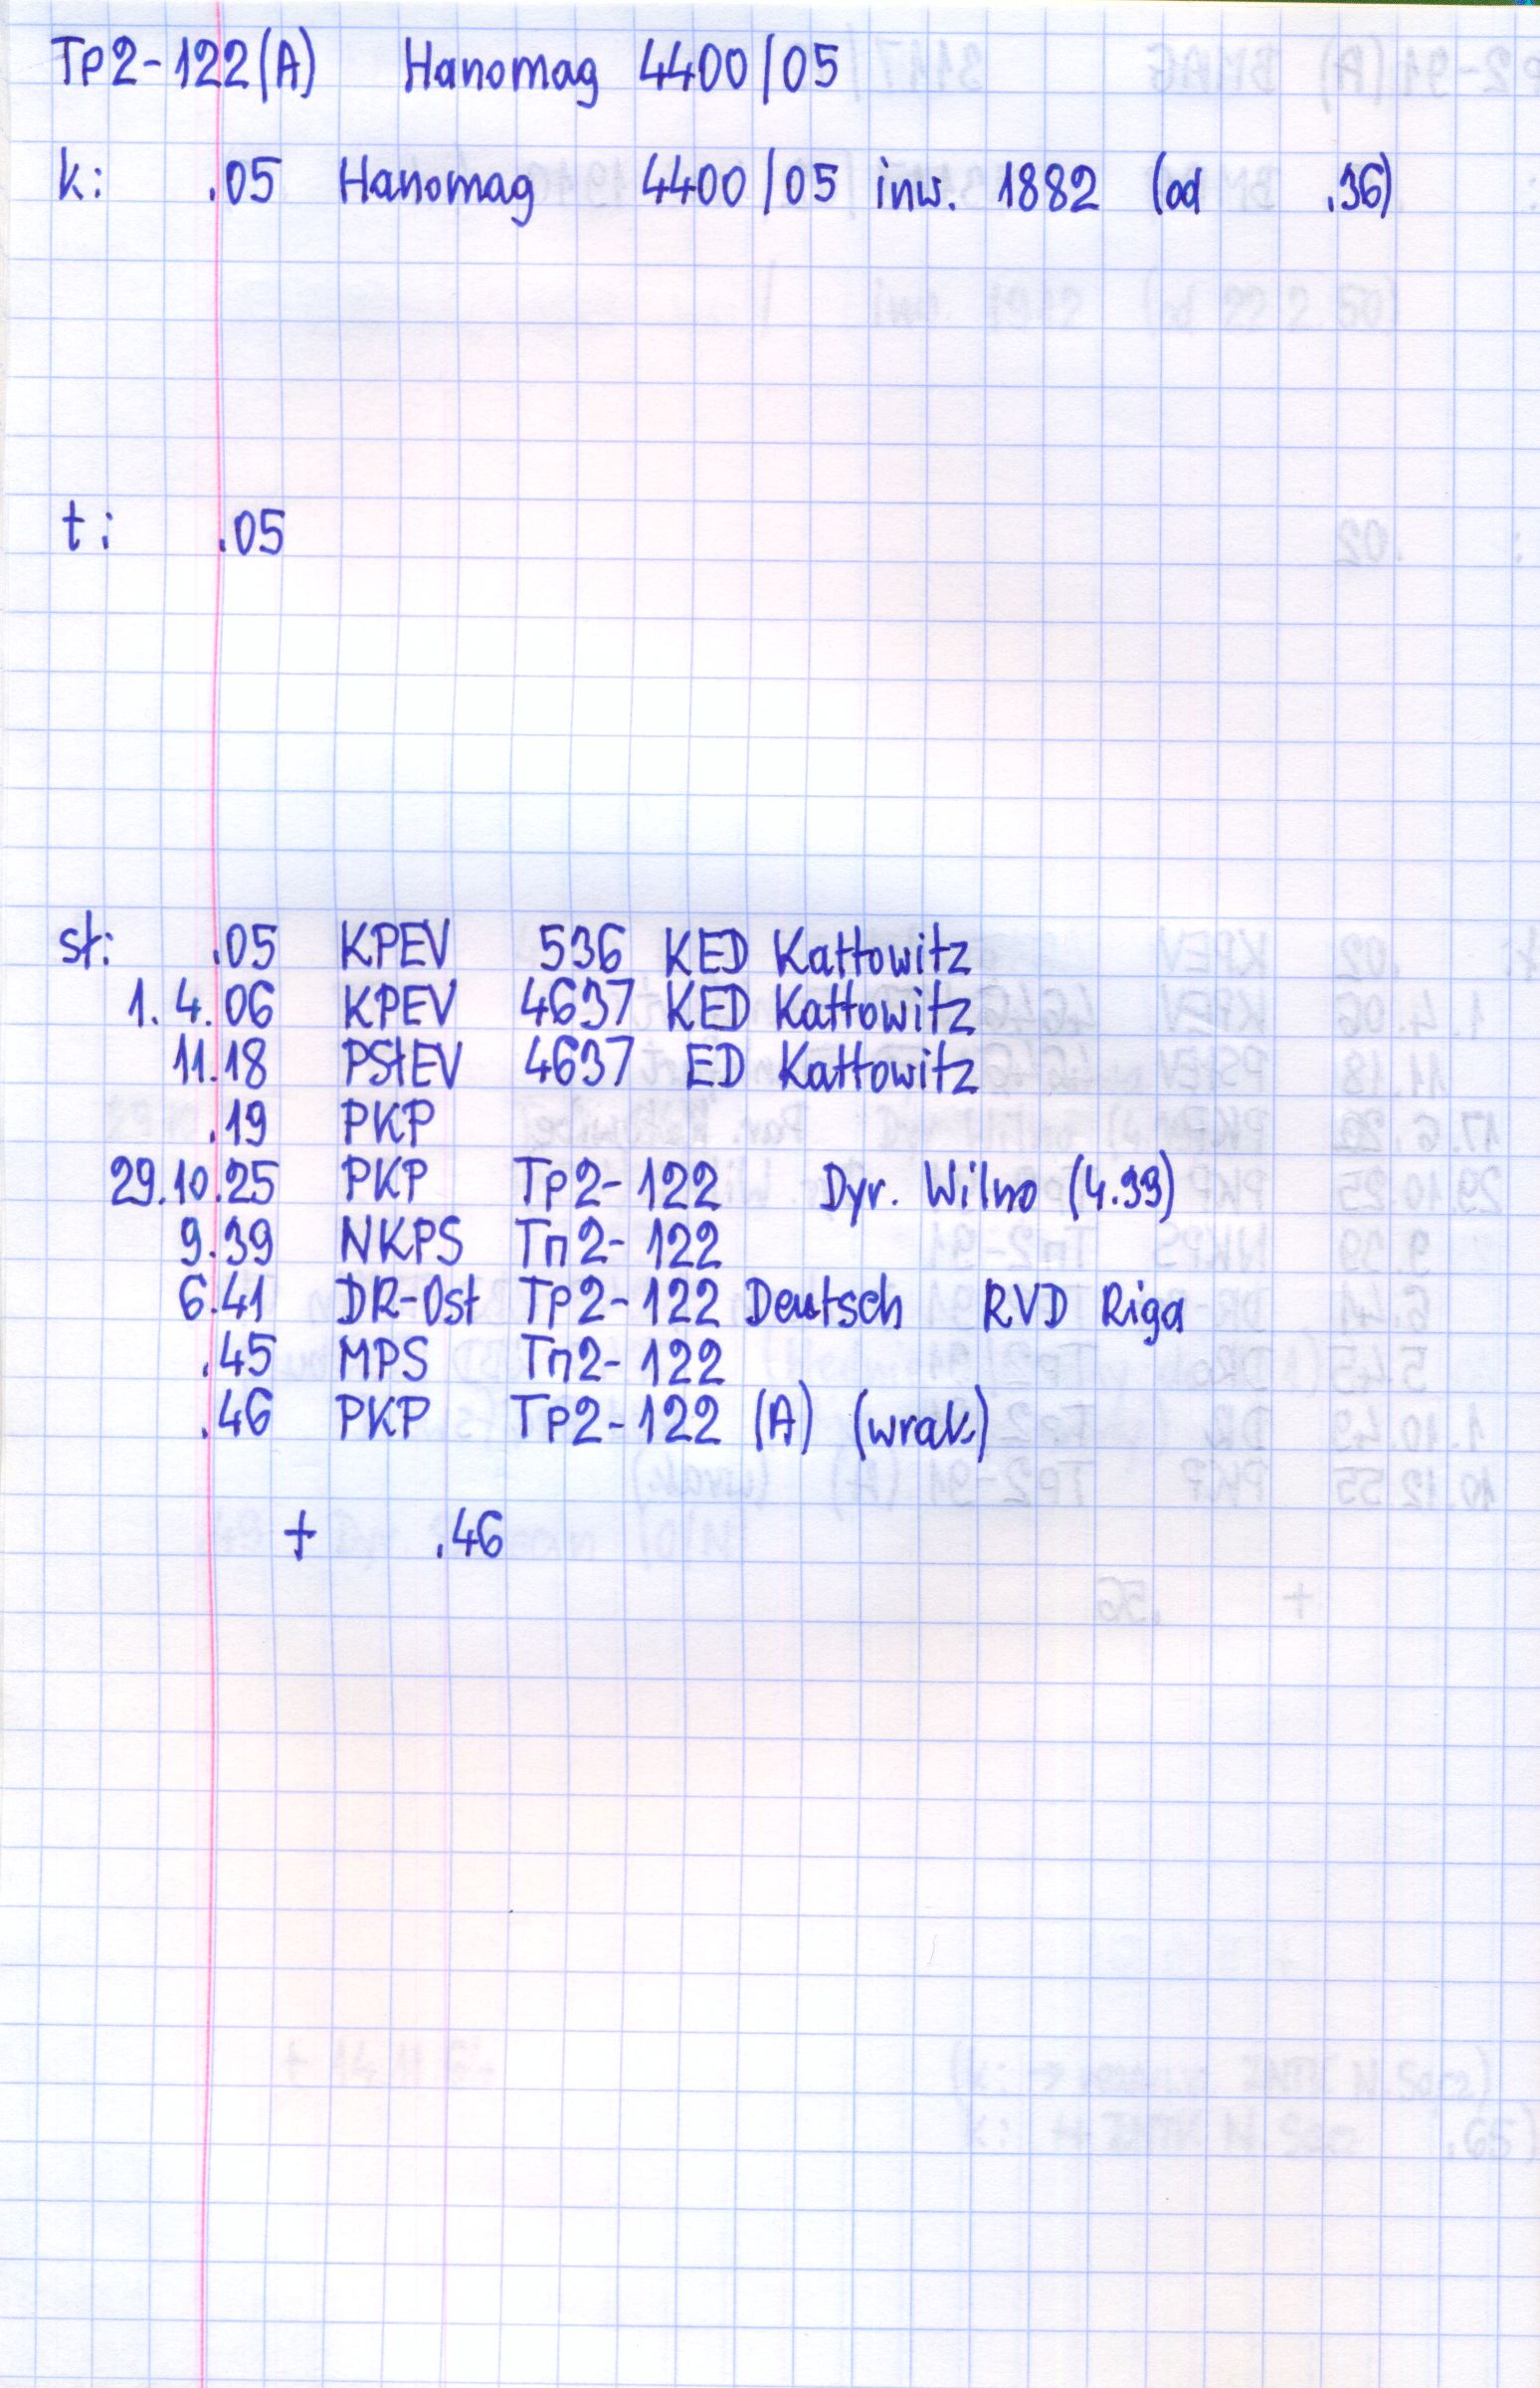 Tp2-122(A) Hanomag 4400/05
k: .05 Hanomag 4400/05 inw. 1882 (od .36)
t: .05
st: .05 KPEV 536 KED Kattowitz
1.4.06 KPEV 4637 KED Kattowitz
11.18 PStEV 4637 ED Kattowitz
.19 PKP
29.10.25 PKP Tp2-122 Dyr. Wilno (4.39)
9.39 NKPS Тп2-122
6.41 DR-Ost Tp2-122 Deutsch RVD Riga
.45 MPS Тп2-122
.46 PKP Tp2-122 (A) (wrak)
+ .46